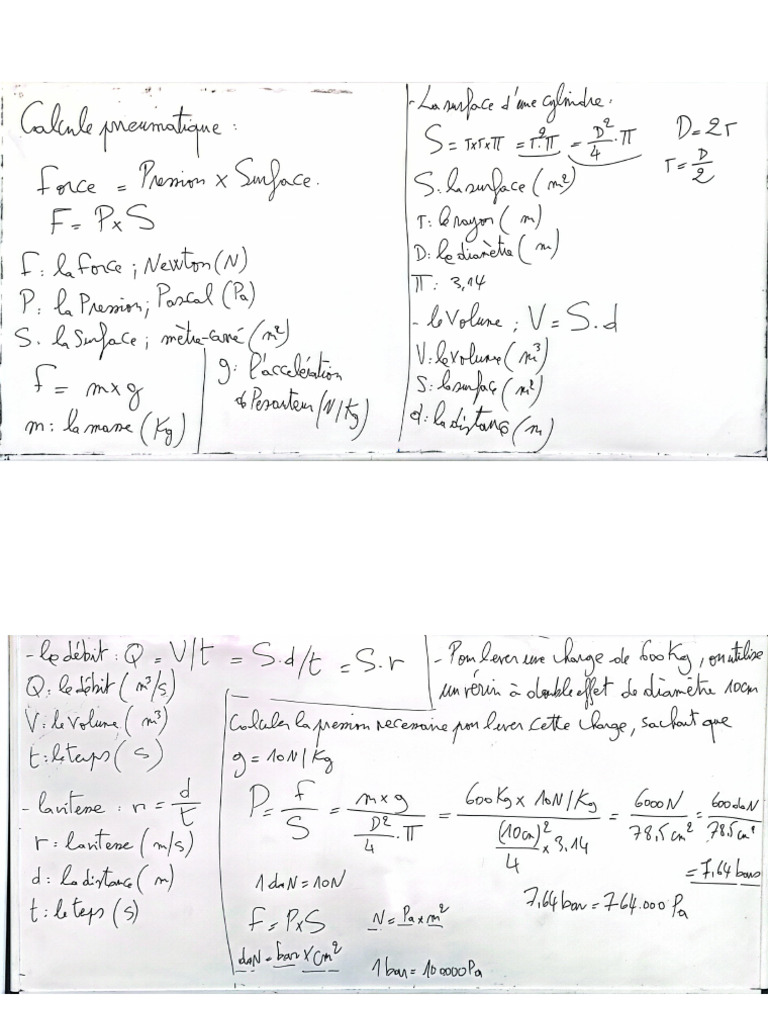 Calcule pneumatique :
Force = Pression x Surface.
F = P x S
F : la force ; Newton (N)
P : la Pression ; Pascal (Pa)
S : la Surface ; mètre-carré (m²)
F = m x g
m : la masse (Kg)
g : l'accelération
de Pesanteur (N/Kg)
- La surface d'une cylindre :
S = r x r x π = r².π = D²/4 . π
D = 2r
r = D/2
S : la surface (m²)
r : le rayon (m)
D : le diamètre (m)
π : 3,14
- le Volume ; V = S.d
V : le volume (m³)
S : la surface (m²)
d : la distance (m)
- le débit : Q = V/t = S.d/t = S.v
Q : le débit (m³/s)
V : le Volume (m³)
t : le temps (s)
- la vitesse : v = d/t
v : la vitesse (m/s)
d : la distance (m)
t : le temps (s)
- Pour lever une charge de 600Kg, on utilise
un vérin à double effet de diamètre 10cm
Calculer la pression necessaire pour lever cette charge, sachant que
g = 10N/Kg
P = F/S = (m x g)/(D²/4 . π) = (600Kg x 10N/Kg)/((10cm)²/4 x 3,14) = 6000N/78,5cm² = 600daN/78,5cm²
= 7,64 bars
1daN = 10N
7,64 bar = 764.000 Pa
F = P x S
N = Pa x m²
daN = bar x cm²
1 bar = 100000Pa